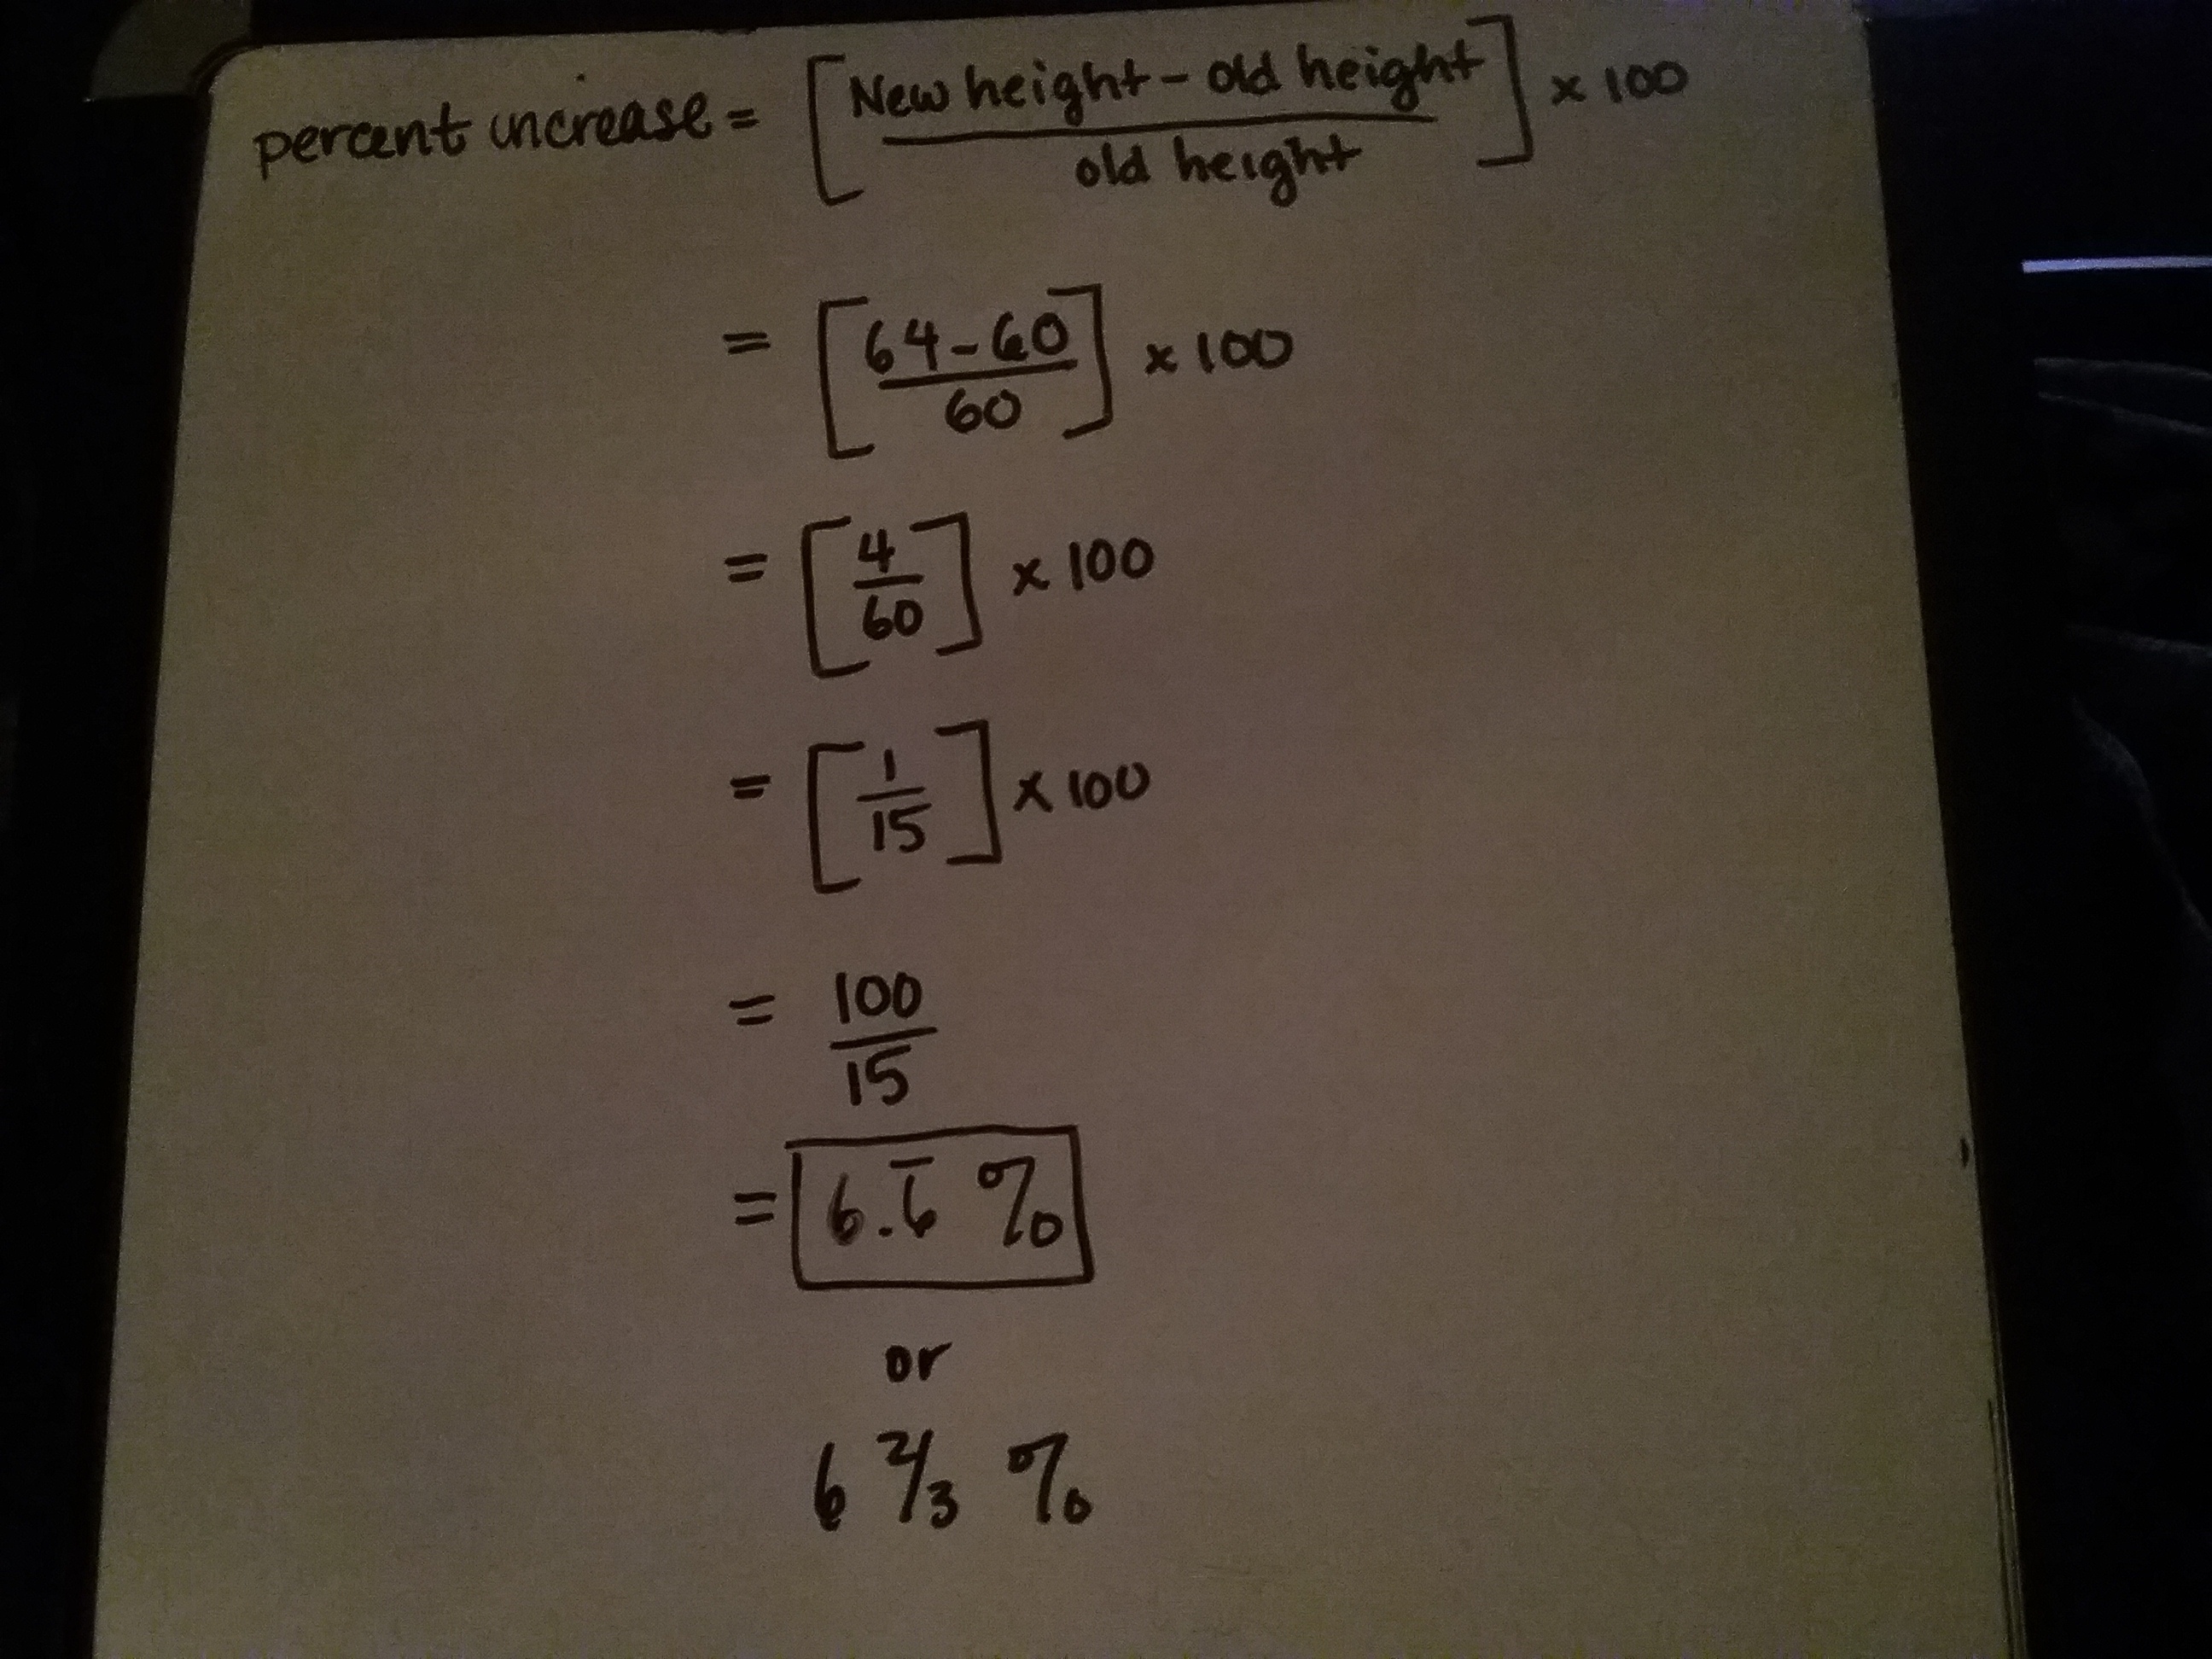 percent increase = [New height - old height / old height] x 100
= [64-60 / 60] x 100
= [4/60] x 100
= [1/15] x 100
= 100/15
= 6.6̅ %
or
6 2/3 %